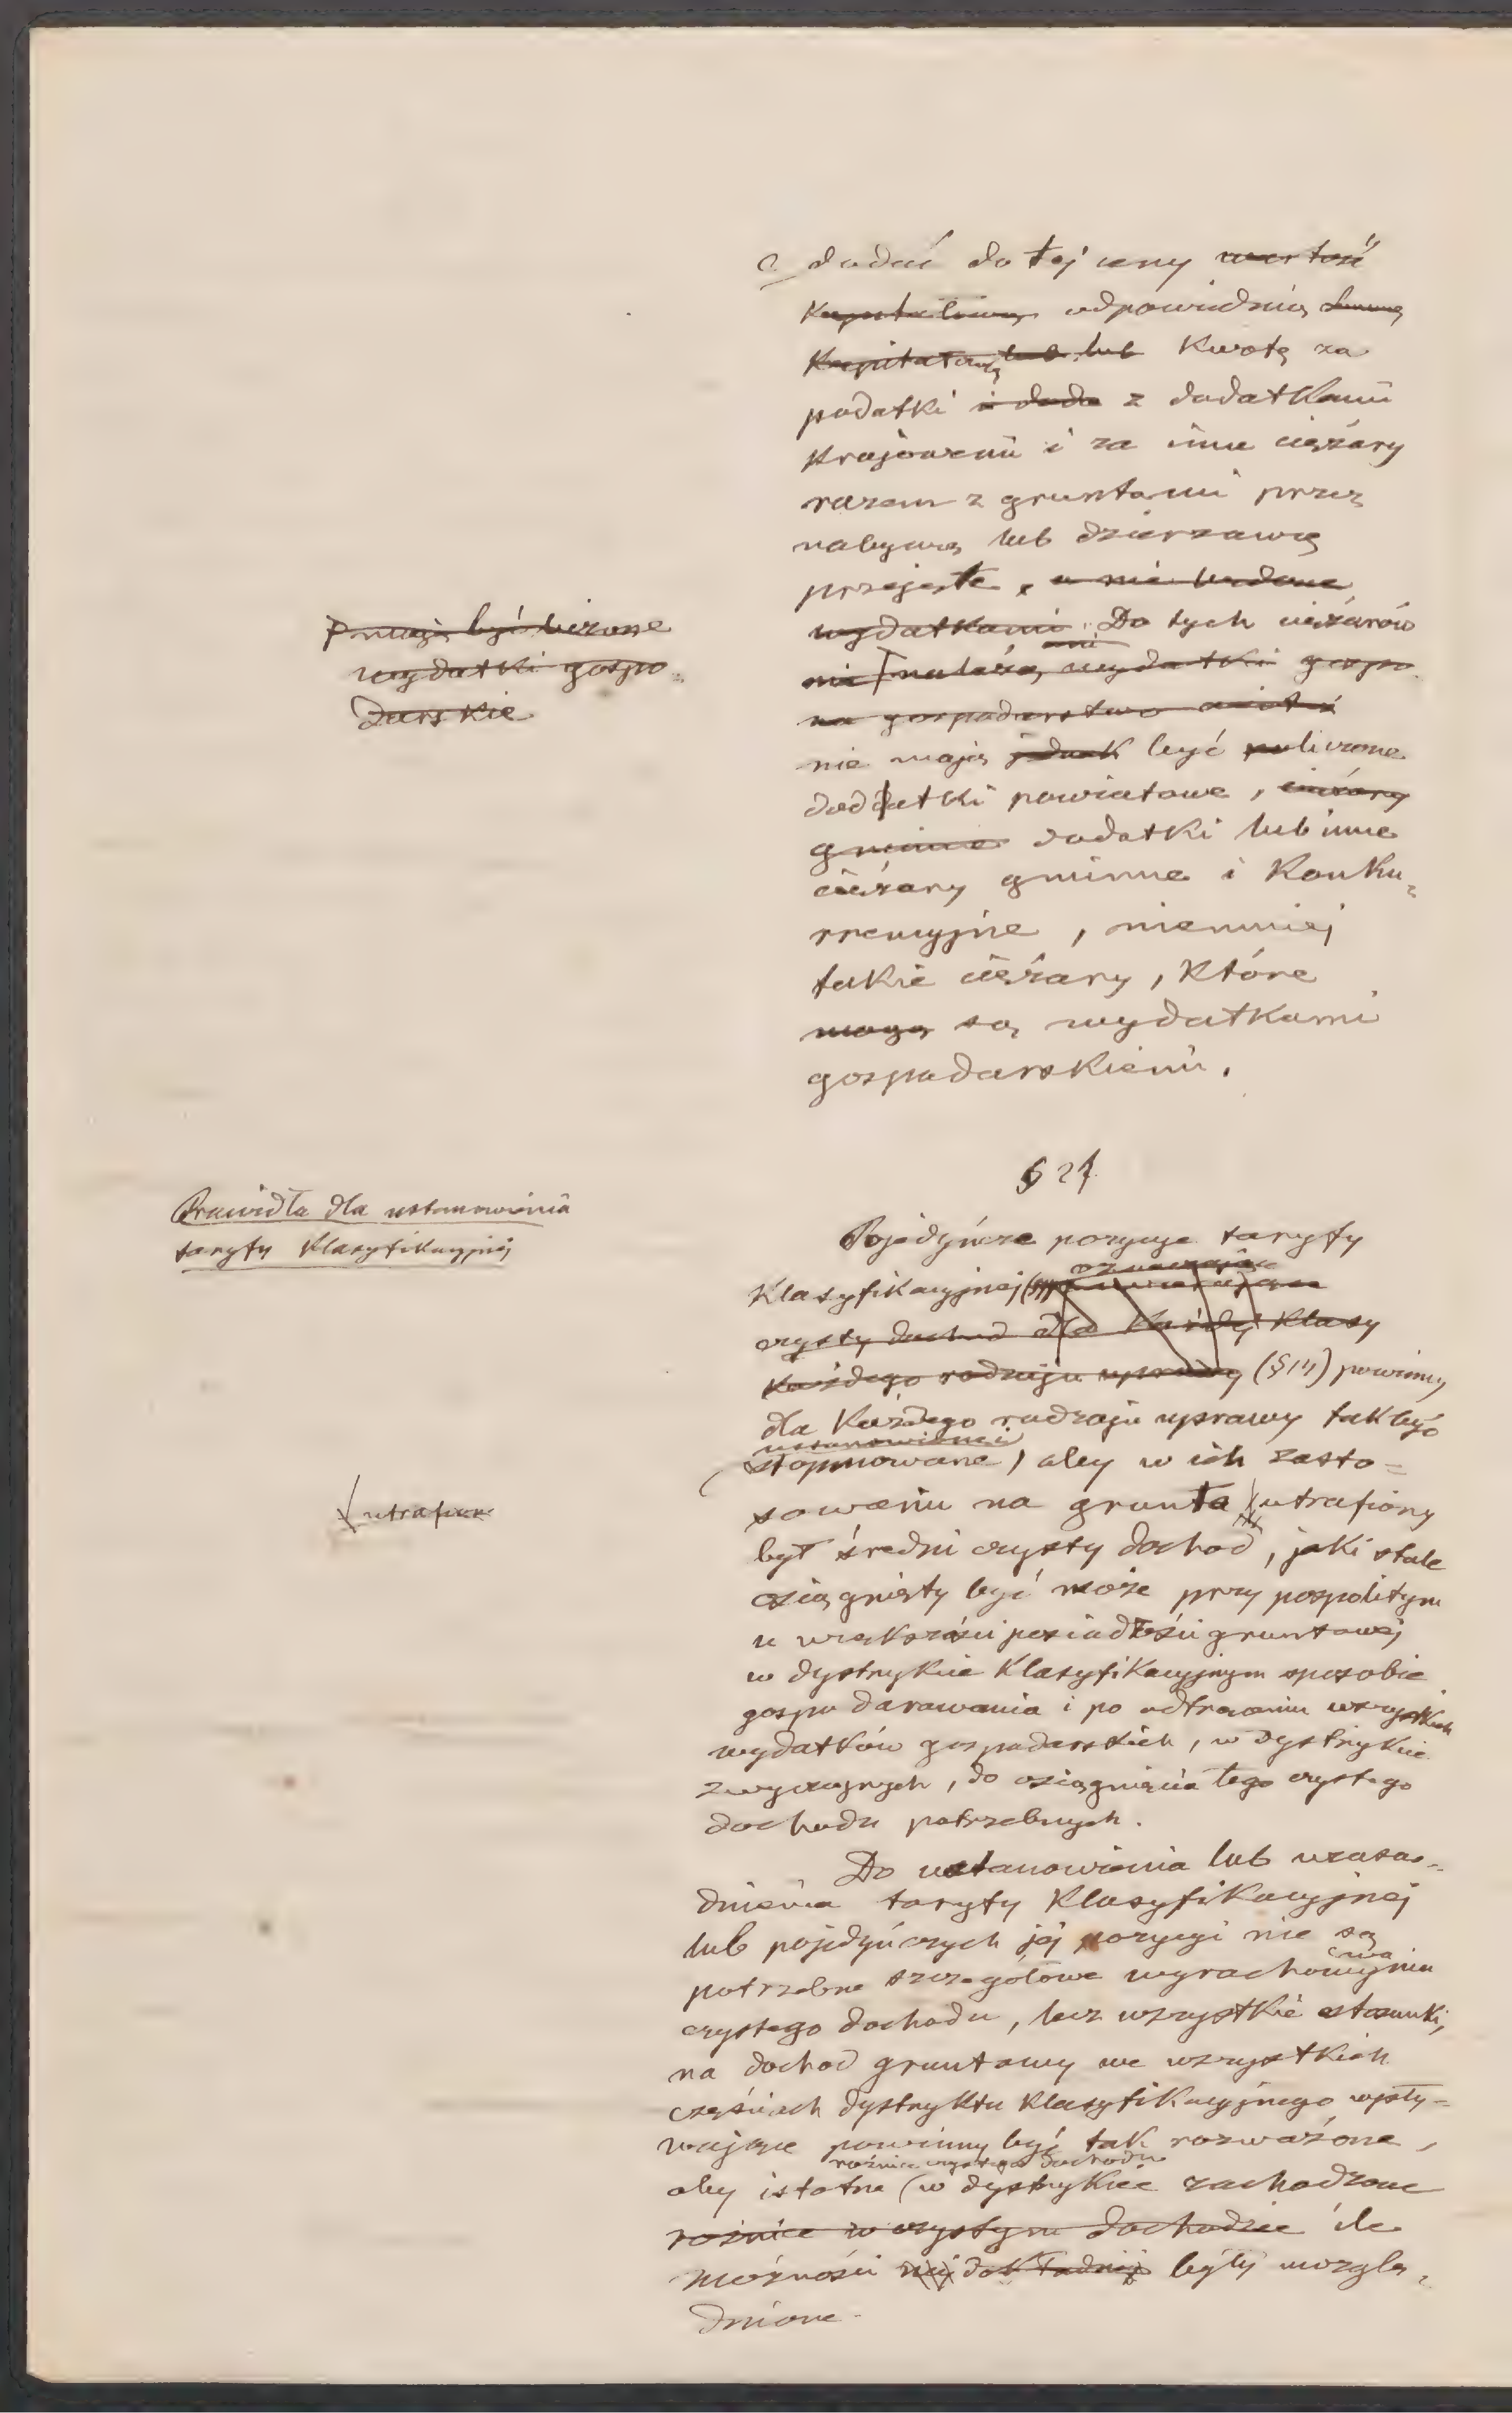 dodać do tej ceny wartość
Kapitalową odpowiednią sumę
Kapitałową lub lub Kwotę za
podatki i doda z dodatkami
Krajowemi i za inne ciężary
razem z gruntami przez
nabywcę lub dzierzawcę
przejęte, a nie będące
wydatkami. Do tych ciężarów
ani
nie należą wydatki gospo
na gospodarstwo
nie mają jednak być policzone
doddatki powiatowe, ciężary
gminne dodatki lub inne
ciężary gminne i Konku-
rrencyjne, niemniej
takie ciężary, Które
mogą są wydatkami
gospodarskiemi.
mają być liczone
wydatki gospo-
darskie
§ 27
Prawidła dla ustanowienia
taryfy Klasyfikacyjnéj
Pojedyńcze pozycye taryfy
oznaczające
Klasyfikacyjnej
czysty dochod dla Każdéj Klasy
Każdego rodzaju uprawy (§ 14) powinny
dla Każdego rodzaju uprawy tak być
ustanowione
stopniowane, aby w ich zasto-
sowaniu na grunta utrafiony
utrafion
był średni czysty dochod, jaki stale
osiągnięty być może przy pospolitym
u większości posiadłości gruntowej
w dystrykcie Klasyfikacyjnym sposobie
gospodarowania i po odtrąceniu wszystkich
wydatków gospodarskich, w dystrykcie
zwyczajnych, do osiągnięcia tego czystego
dochodu potrzebnych.
Do ustanowienia lub uzasa-
dnienia taryfy Klasyfikacyjnej
lub pojedyńczych jéj pozycyi nie są
potrzebne szczegółowe wyrachowywania
czystego dochodu, lecz wszystkie stosunki,
na dochod gruntowy we wszystkich
częściach dystryktu Klasyfikacyjnego wpły-
wające powinny być tak rozważone,
rożnice czystego dochodu
aby istotne w dystrykcie zachodzące
rożnice w czystym dochodzie ile
możności najdokładniej były uwzglę-
dnione.